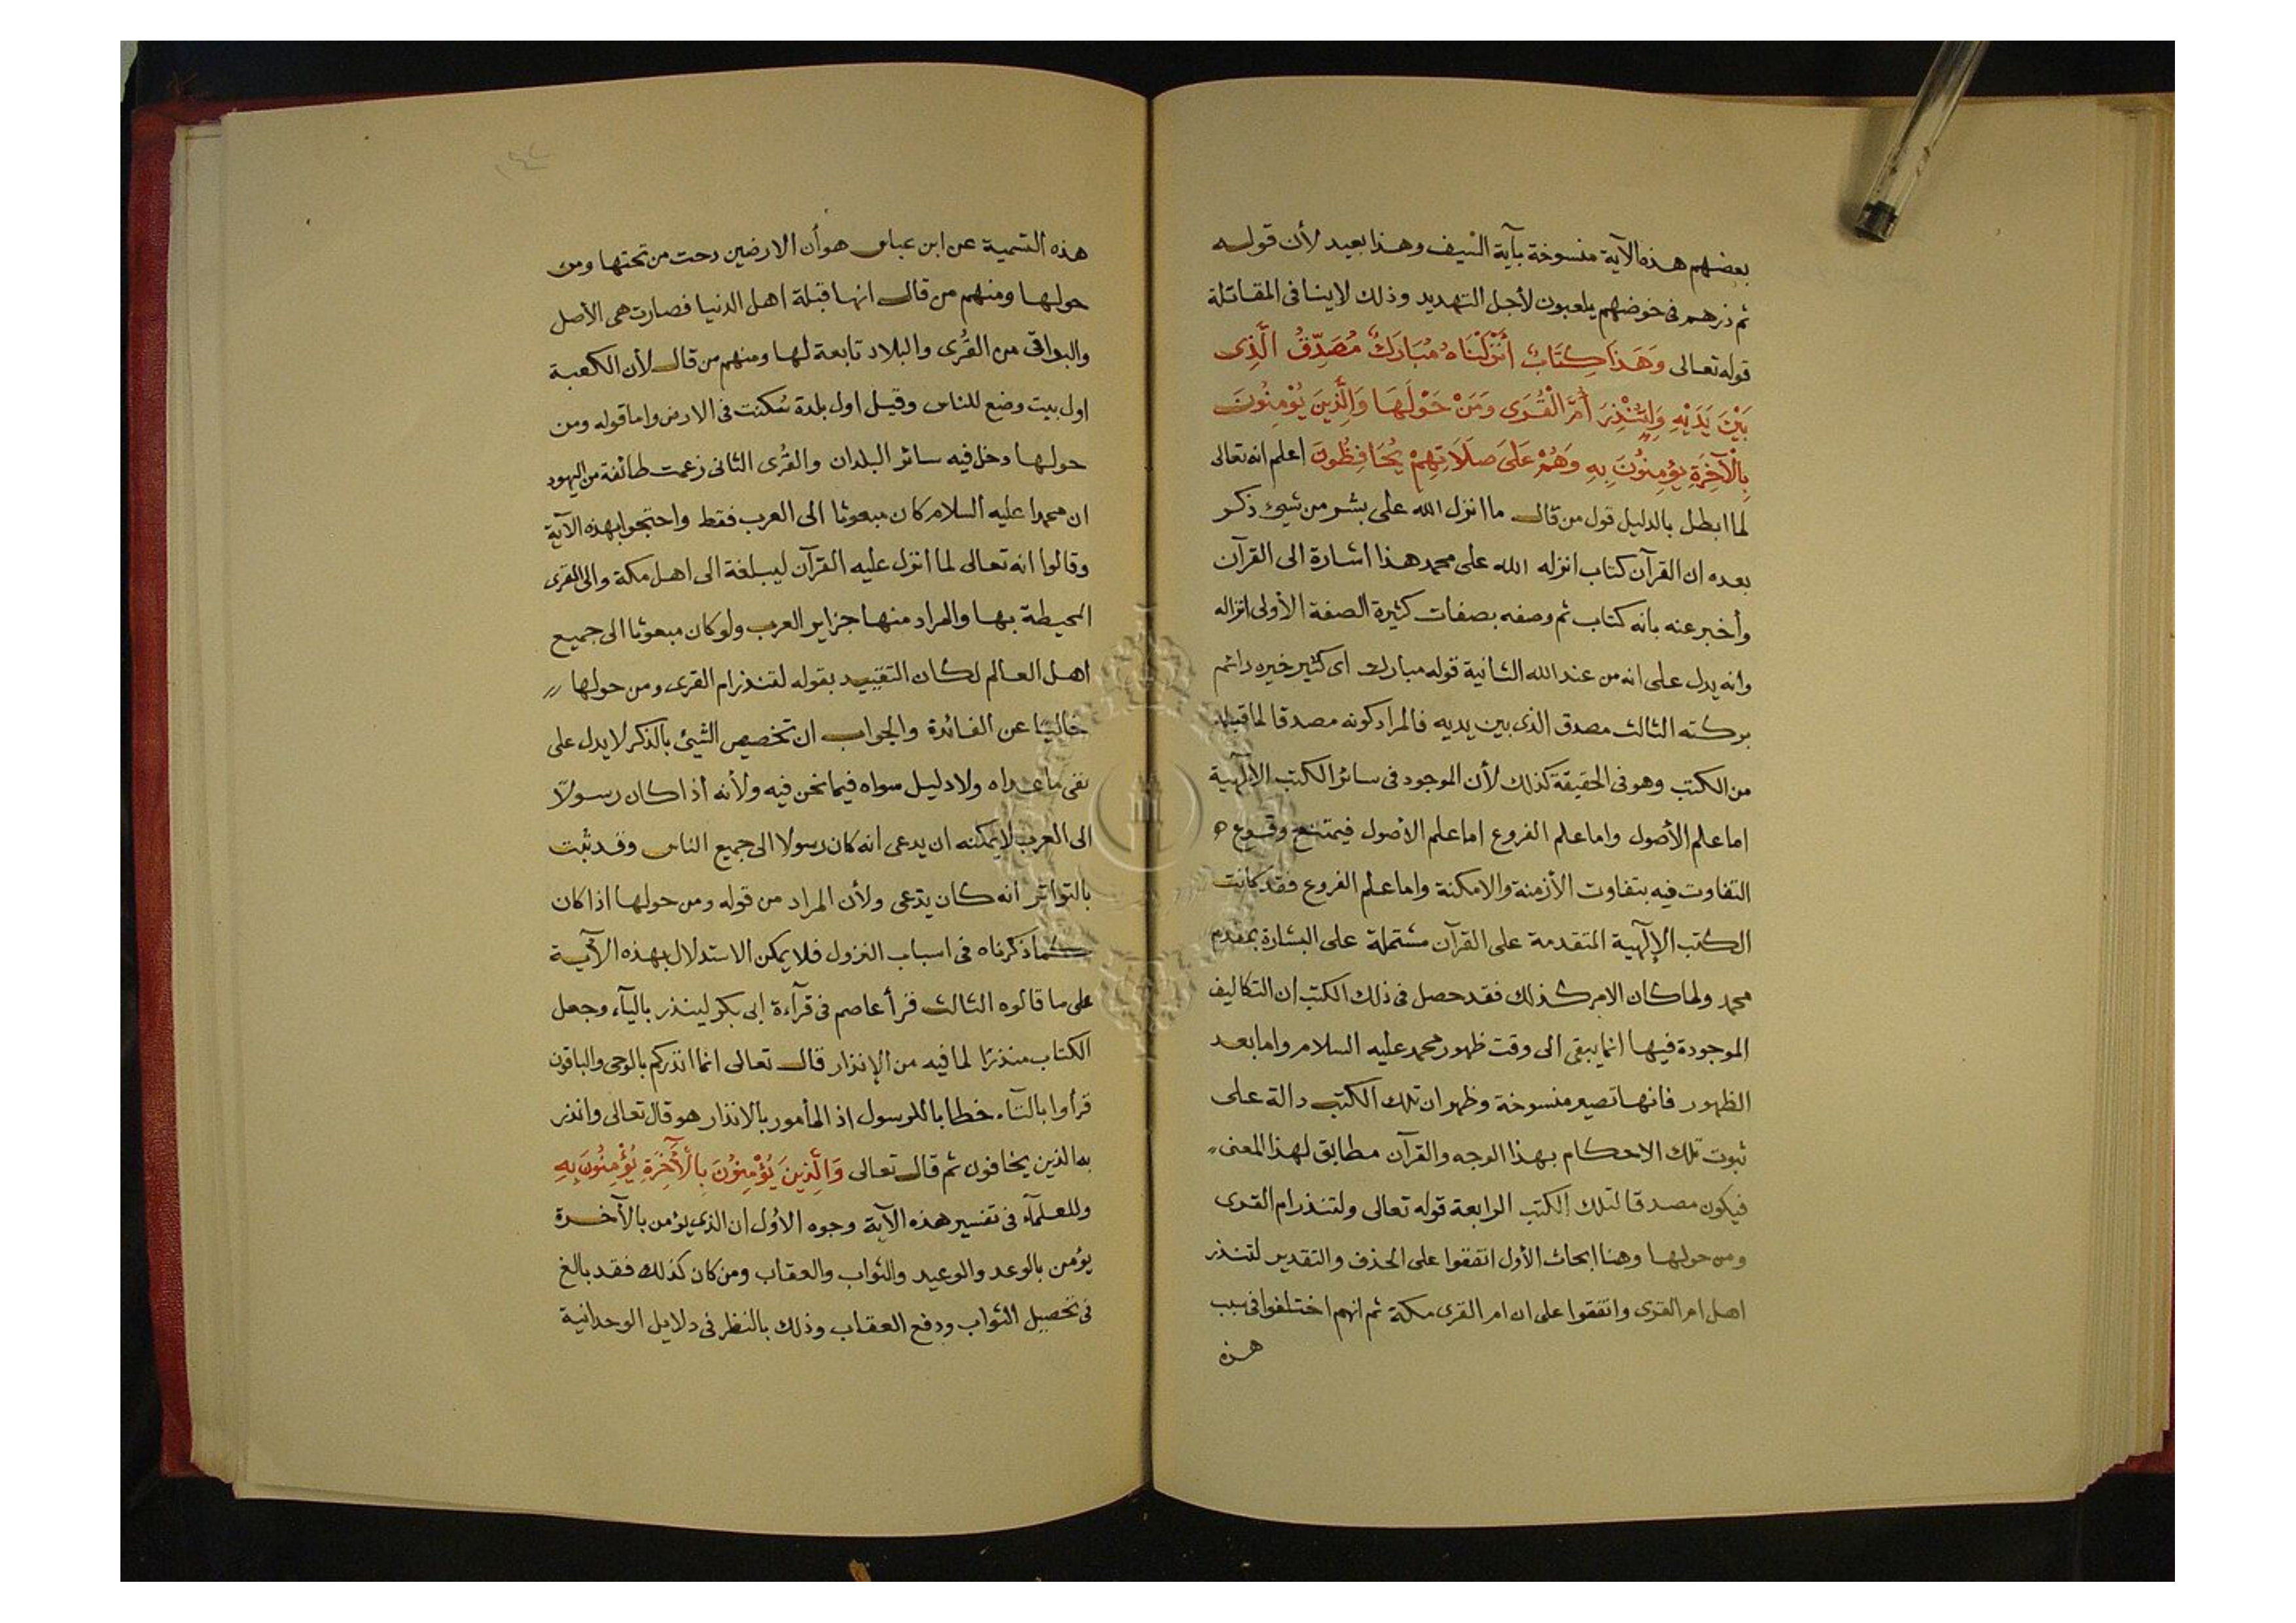 بعضهم هذه الآية منسوخة بآية السيف وهذا بعيد لأن قوله
ثم ذرهم فى خوضهم يلعبون لأجل التهديد وذلك لاينافى المقاتلة
قوله تعالى وَهَذَا كِتَابٌ أَنْزَلْنَاهُ مُبَارَكٌ مُصَدِّقُ الَّذِى
بَيْنَ يَدَيْهِ وَلِتُنْذِرَ أُمَّ الْقُرَى وَمَنْ حَوْلَهَا وَالَّذِينَ يُؤْمِنُونَ
بِالْآخِرَةِ يُؤْمِنُونَ بِهِ وَهُمْ عَلَى صَلَاتِهِمْ يُحَافِظُونَ اعلم انه تعالى
لما ابطل بالدليل قول من قال ما انزل الله على بشر من شيئ ذكر
بعده ان القرآن كتاب انزله الله على محمد هذا اشارة الى القرآن
وأخبر عنه بانه كتاب ثم وصفه بصفات كثيرة الصفة الأولى انزاله
وانه يدل على انه من عند الله الثانية قوله مبارك اى كثير خيره دائم
بركته الثالث مصدق الذى بين يديه فالمراد كونه مصدقا لما قبله
من الكتب وهو فى الحقيقة كذلك لأن الموجود فى سائر الكتب الإلٓهية
اما علم الأصول واما علم الفروع اما علم الأصول فيمتنع وقوع
التفاوت فيه بتفاوت الأزمنة والامكنة واما علم الفروع فقد كانت
الكتب الإلٓهية المتقدمة على القرآن مشتملة على البشارة بمقدم
محمد ولما كان الامر كذلك فقد حصل فى ذلك الكتب ان التكاليف
الموجودة فيها انما يبقى الى وقت ظهور محمد عليه السلام واما بعد
الظهور فانها تصير منسوخة وظهر ان تلك الكتب دالة على
ثبوت تلك الاحكام بهذا الوجه والقرآن مطابق لهذا المعنى
فيكون مصدقا لتلك الكتب الرابعة قوله تعالى ولتنذر ام القرى
ومن حولها وهنا ابحاث الأول اتفقوا على الحذف والتقدير لتنذر
اهل ام القرى واتفقوا على ان ام القرى مكة ثم انهم اختلفوا فى سبب
هذه
هذه التسمية عن ابن عباس هو أن الارضين دحت من تحتها ومن
حولها ومنهم من قال انها قبلة اهل الدنيا فصارت هى الأصل
والبواقى من القُرى والبلاد تابعة لها ومنهم من قال لأن الكعبة
اول بيت وضع للناس وقيل اول بلدة سُكنت فى الارض واما قوله ومن
حولها دخل فيه سائر البلدان والقُرى الثانى زعمت طائفة من اليهود
ان محمدا عليه السلام كان مبعوثا الى العرب فقط واحتجوا بهذه الآية
وقالوا انه تعالى لما انزل عليه القرآن ليبلغة الى اهل مكة والى القرى
المحيطة بها والمراد منها جزاير العرب ولو كان مبعوثا الى جميع
اهل العالم لكان التقييد بقوله لتنذر ام القرى ومن حولها
خاليًا عن الفائدة والجواب ان تخصيص الشيئ بالذكر لا يدل على
نفى ما عداه ولا دليل سواه فيما نحن فيه ولأنه اذا كان رسولًا
الى العرب لا يمكنه ان يدعى انه كان رسولا الى جميع الناس وقد ثبت
بالتواتر انه كان يدّعى ولأن المراد من قوله ومن حولها اذا كان
كما ذكرناه فى اسباب النزول فلا يمكن الاستدلال بهذه الآية
على ما قالوه الثالث قرأ عاصم فى قرآءة ابى بكر لينذر باليآء وجعل
الكتاب منذرًا لما فيه من الإنذار قال تعالى انما انذركم بالوحى والباقون
قرأوا بالتآء خطابا للرسول اذ المأمور بالانذار هو قال تعالى وانذر
به الذين يخافون ثم قال تعالى وَالَّذِينَ يُؤْمِنُونَ بِالْأٓخِرَةِ يُؤْمِنُونَ بِهِ
وللعلمآء فى تفسير هذه الآية وجوه الاوُل ان الذى يؤمن بالآخرة
يؤمن بالوعد والوعيد والثواب والعقاب ومن كان كذلك فقد بالغ
فى تحصيل الثواب ودفع العقاب وذلك بالنظر فى دلايل الوحدانية